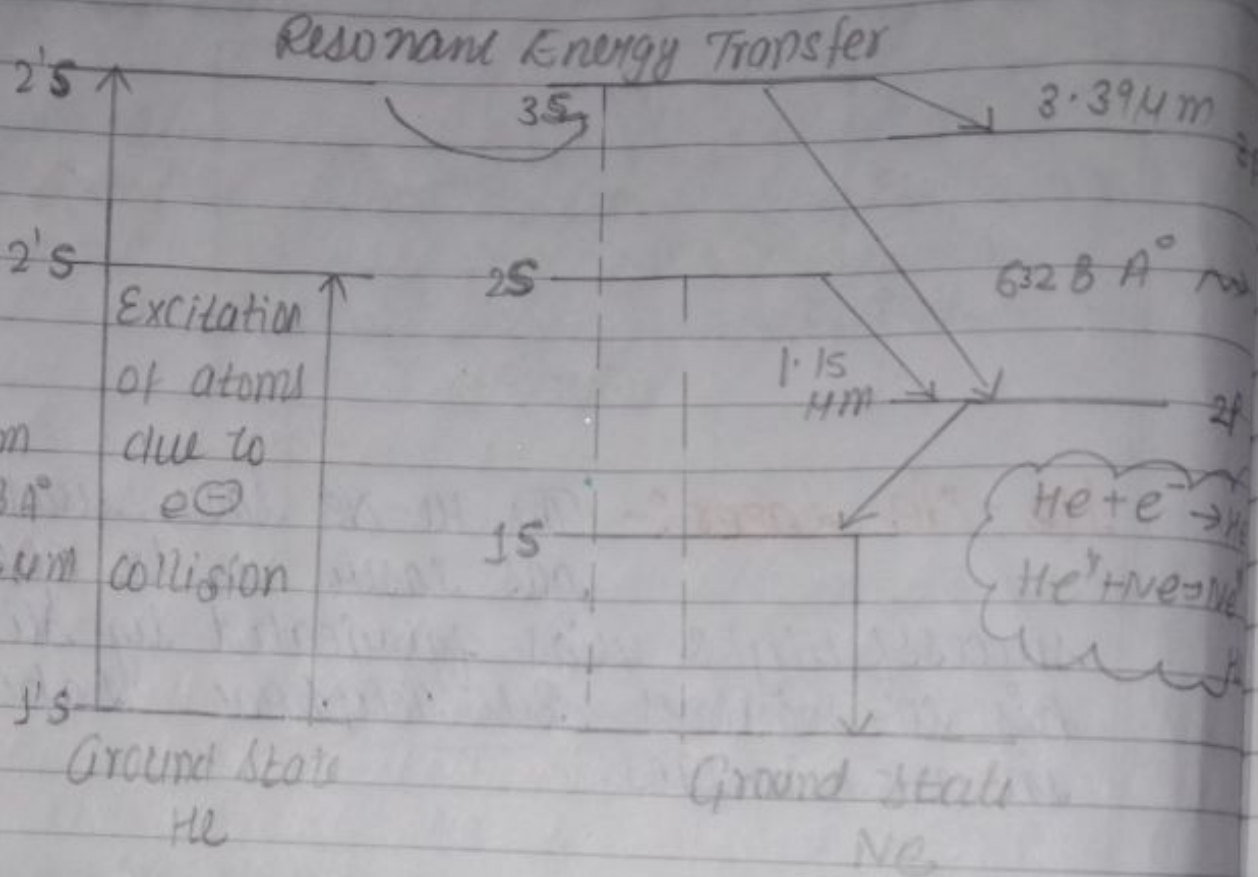 Resonant Energy Transfer
2's
3S
3.39μm
2's
2S
6328 A°
Excitation
of atoms
due to
e⊖
collision
1.15
μm
m
A°
μm
1S
He + e⁻ →
He* + Ne →
1's
Ground State
He
Ground State
Ne